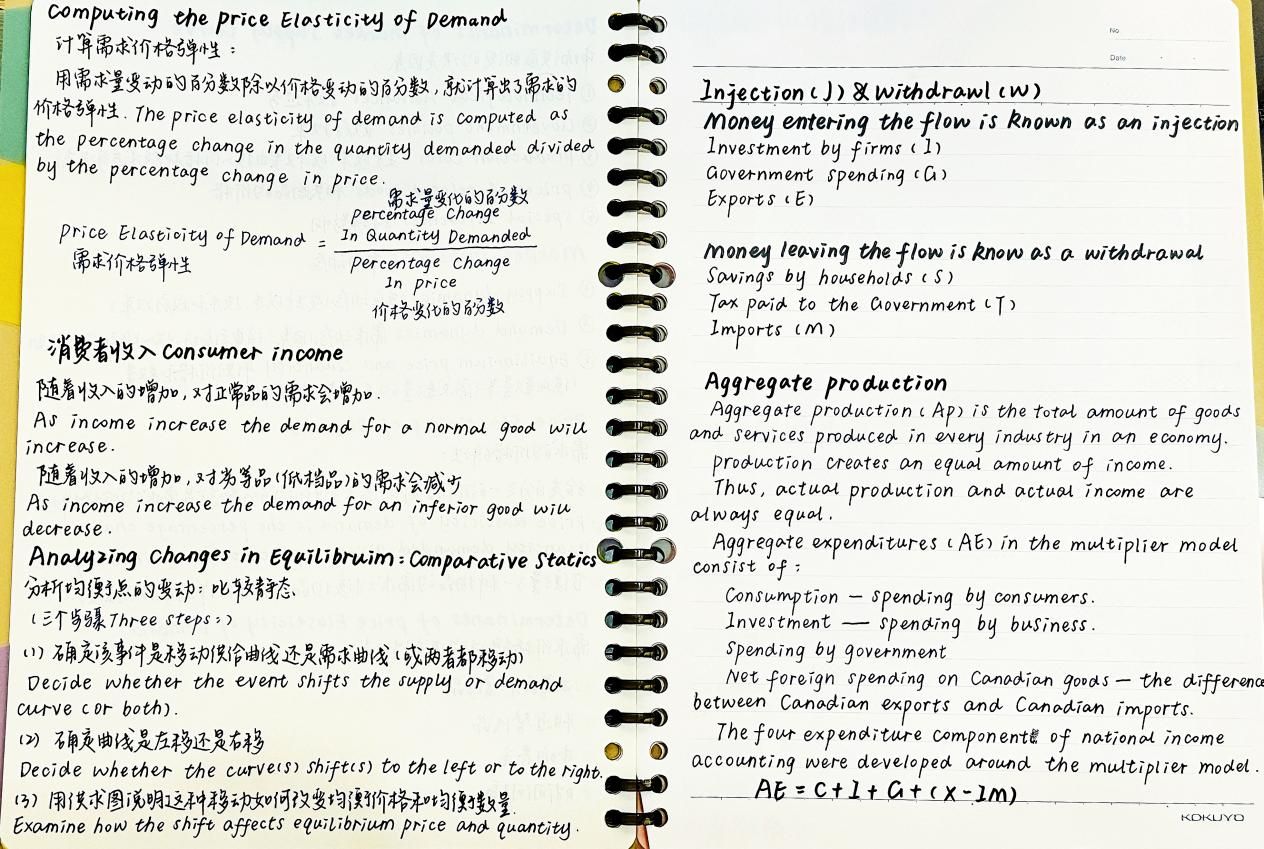 Computing the price Elasticity of Demand
计算需求价格弹性：
用需求量变动的百分数除以价格变动的百分数，就计算出了需求的
价格弹性. The price elasticity of demand is computed as
the percentage change in the quantity demanded divided
by the percentage change in price.
需求量变化的百分数
percentage change
In Quantity Demanded
Price Elasticity of Demand =
需求价格弹性
Percentage Change
In price
价格变化的百分数
消费者收入 Consumer income
随着收入的增加，对正常品的需求会增加.
As income increase the demand for a normal good will
increase.
随着收入的增加，对劣等品(低档品)的需求会减少
As income increase the demand for an inferior good will
decrease.
Analyzing changes in Equilibruim: Comparative Statics
分析均衡点的变动：比较静态
(三个步骤Three steps:)
(1) 确定该事件是移动供给曲线还是需求曲线(或两者都移动)
Decide whether the event shifts the supply or demand
curve (or both).
(2) 确定曲线是左移还是右移
Decide whether the curve(s) shift(s) to the left or to the right.
(3) 用供求图说明这种移动如何改变均衡价格和均衡数量.
Examine how the shift affects equilibrium price and quantity.
No
Date
Injection (J) & withdrawl (W)
Money entering the flow is known as an injection
Investment by firms (I)
Government spending (G)
Exports (E)
Money leaving the flow is know as a withdrawal
Savings by households (S)
Tax paid to the Government (T)
Imports (M)
Aggregate production
Aggregate production (Ap) is the total amount of goods
and services produced in every industry in an economy.
production creates an equal amount of income.
Thus, actual production and actual income are
always equal.
Aggregate expenditures (AE) in the multiplier model
consist of:
Consumption — spending by consumers.
Investment — spending by business.
Spending by government
Net foreign spending on Canadian goods — the difference
between Canadian exports and Canadian imports.
The four expenditure component of national income
accounting were developed around the multiplier model.
AE = C + I + G + (X - IM)
KOKUYO